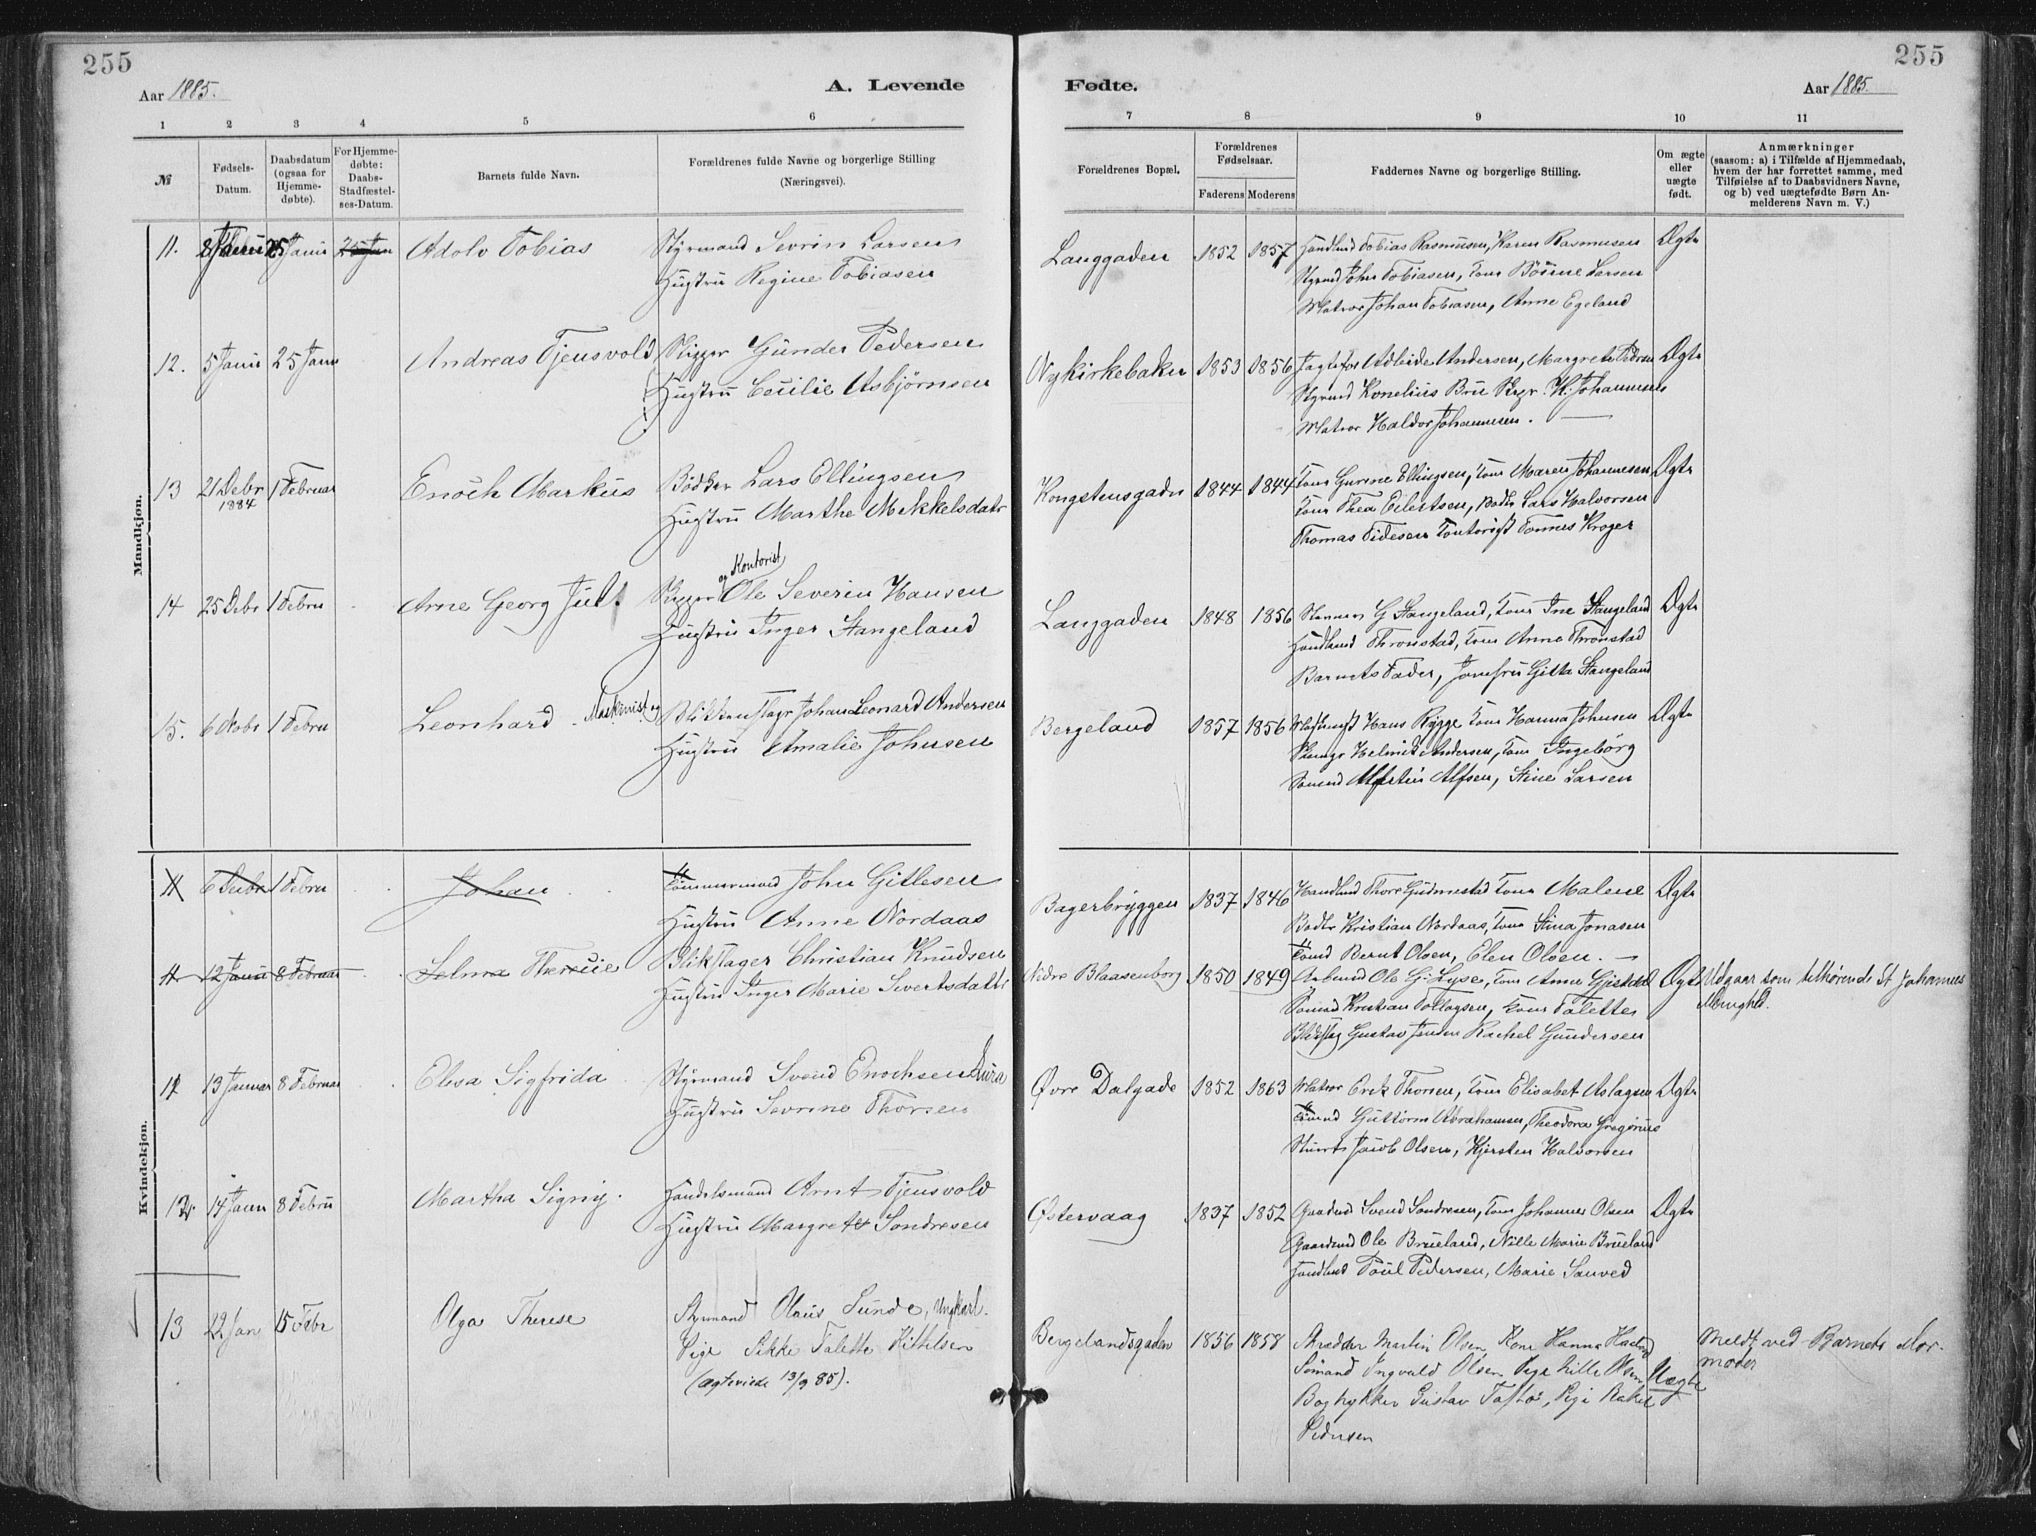 255
255
Aar 1885.
A. Levende
Fødte.
Aar 1885.
1 2 3 4 5 6
7 8 9 10 11
№
Fødsels-Datum.
Daabsdatum (ogsaa for Hjemme-døbte).
For Hjemme-døbte: Daabs-Stadfæstel-ses-Datum.
Barnets fulde Navn.
Forældrenes fulde Navne og borgerlige Stilling
(Næringsvei).
Forældrenes Bopæl.
Forældrenes Fødselsaar.
Faderens Moderens
Faddernes Navne og borgerlige Stilling.
Om ægte eller uægte født.
Anmærkninger
(saasom: a) i Tilfælde af Hjemmedaab,
hvem der har forrettet samme, med
Tilføielse af to Daabsvidners Navne,
og b) ved uægtefødte Børn An-
melderens Navn m. V.)
Mandkjøn.
11. 8 Janu 25 Janu 25 Jan Adolv Tobias
Styrmand Sevrin Larsen
Hustru Regine Tobiasen
Langgaden 1852 1857
Handlmd Tobias Rasmusen, Karen Rasmusen
Styrmd John Tobiasen, Larsen
Matros Johan Tobiasen, Anne Egeland
Ægte
12. 5 Janu 25 Janu Andreas Tjensvold
Skipper Gunder Pedersen
Hustru Cecilie Asbjörnsen
Nykirkebaken 1853 1856
Andersen, Margrete Pedersen
Styrmd Kornelius Bru H. Johannesen
Matros Haldor Johannesen.
Ægte
13 21 Debr 1884 1 Februar Enoch Markus
Bödker Lars Ellingsen
Hustru Marthe Mikkelsdatr
Kongstensgaden 1844 1844
Kone Gurine Ellingsen, Kone Maren Johannesen
Kone Thea Eilertsen, Lars Halvorsen
Thomas Tidesen Kontorist Tonnes Kroger
Ægte
14 25 Debr 1 Febru Arne Georg Jul
Skipper og Kontorist Ole Severin Hansen
Hustru Inger Stangeland
Langgaden 1848 1856
G Stangeland, Kone Ine Stangeland
Handlmd Thronstad, Kone Anne Thronstad
Barnets Fader, Jomfru Gitta Stangeland
Ægte
15. 6 1 Febru Leonhard
Maskinist og Blikkenslagr Johan Leonard Andersen
Hustru Amalie Johnsen
Bergeland 1857 1856
Hans Rygge Kone Hanna Johnsen
Andersen, Kone Ingeborg
Alfsen, Stine Larsen
Ægte
Kvindekjøn.
11 6 Debr 1 Febru Johan
Tömmermand John Gitlesen
Hustru Anne Nordaas
Bagerbryggen 1837 1846
Handlmd Thore Gudmestad Kone Malene
Kristian Nordaas, Kone Stina Jonasen
Bernt Olsen, Elen Olsen.
Ægte
11 12 Janu 8 Februar Selma Theresie
Blikslager Christian Knudsen
Hustru Inger Marie Sivertsdatter
Nedre Blaasenborg 1850 1849
Arbmd Ole G. Lyse, Kone Anne Gjesdal
Sömand Kristian Tollagsen, Kone Talette
Gustav Jensen Rachel Gundersen
Ægte
Udgaar som tilhørende St Johannes
Menighd.
12 13 Januar 8 Februar Elisa Sigfrida
Styrmand Svend Enochsen Aura
Hustru Sevrine Thorsen
Øvre Dalgade 1852 1863
Matros Erik Thorsen, Kone Elisabet Aslagsen
Guttorm Abrahamsen, Theodora Gregorius
Jacob Olsen, Kjersten Halvorsen
Ægte
12 14 Janu 8 Febru Martha Signy.
Handelsmand Arnt Tjensvold
Hustru Margrethe Sondresen
Østervaag 1837 1852
Gaardmd Svend Sondresen, Kone Johanne Olsen
Gaardmd Ole Brueland, Nille Marie Brueland
Handlmd Poul Pedersen, Marie Sanved
Ægte
13 22 Jan 15 Febr Olga Therese
Styrmand Olaus Sunde, Ungkarl.
Pige Sikke Talette Kittilsen
(ægteviede 13/9 85).
Bergelandsgaden 1856 1858
Skrædder Martin Olsen Kone Hanna
Sömand Ingvald Olsen, Pige Nille Olsen
Bogtrykker Gustav Taftø, Pige Rakel
Pedersen
Uægte
Meldt ved Barnets Mor-
moder